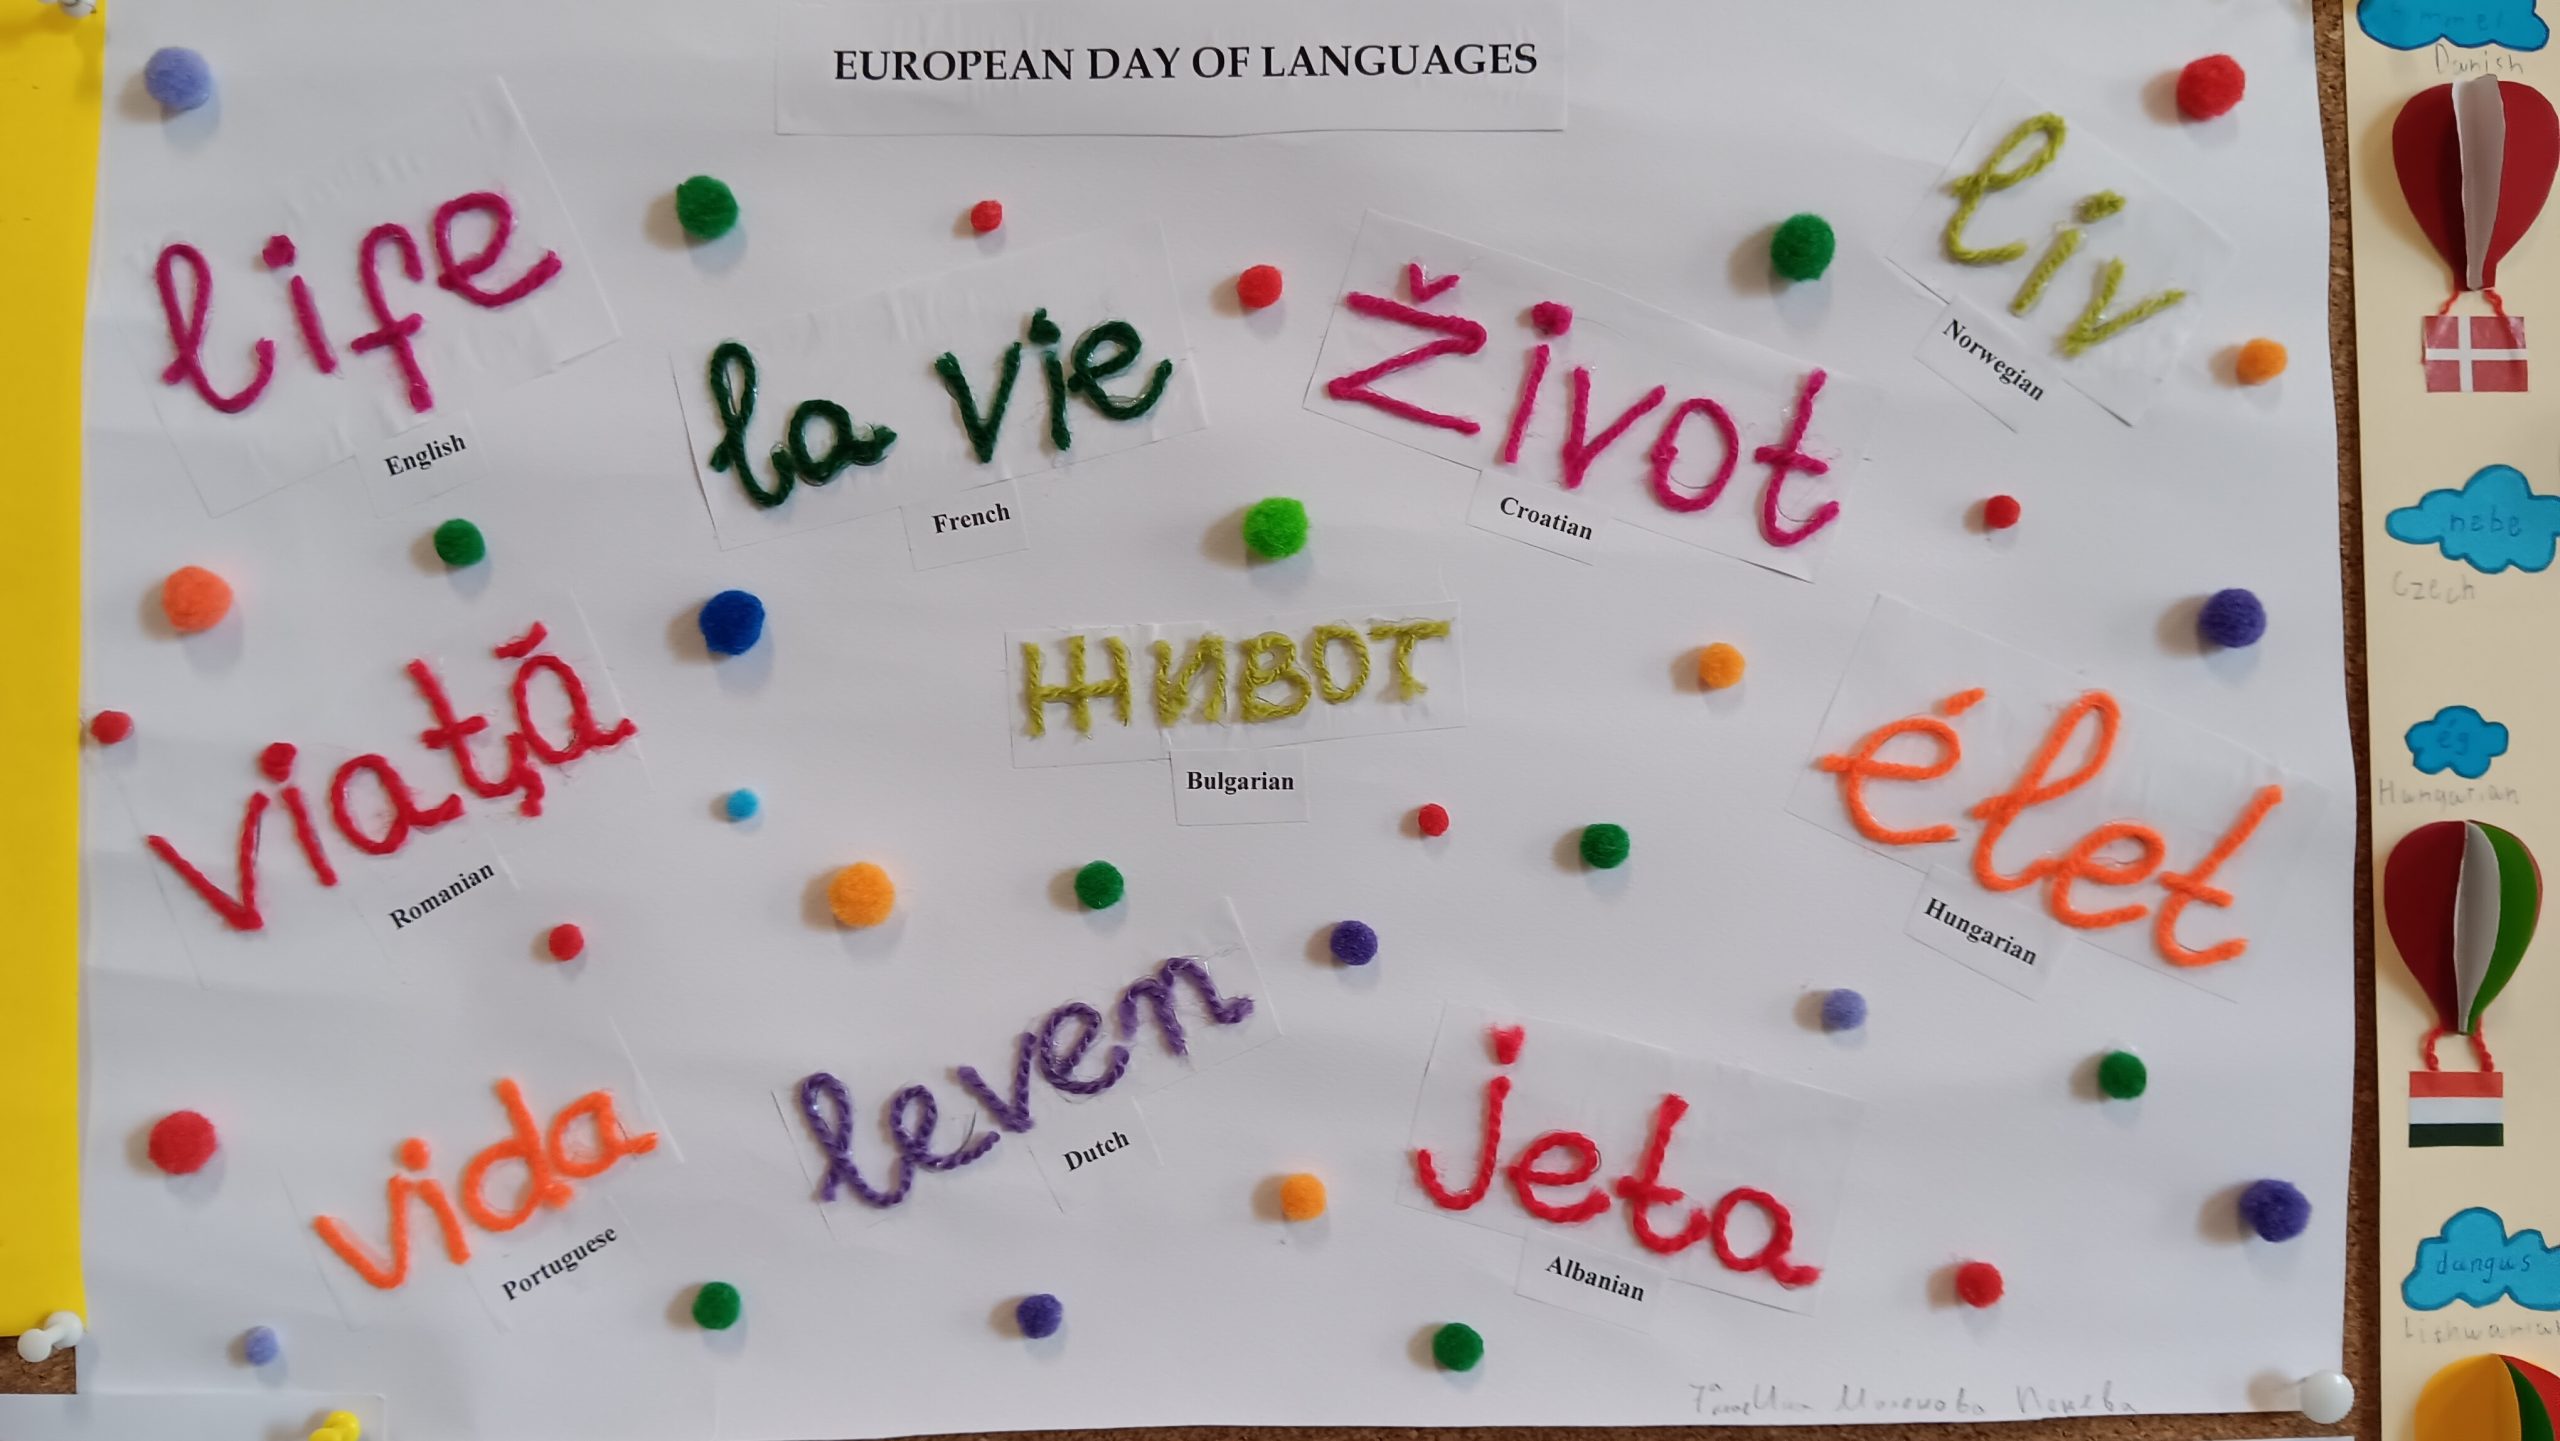 EUROPEAN DAY OF LANGUAGES
life
English
la vie
French
Život
Croatian
liv
Norwegian
viaţă
Romanian
живот
Bulgarian
élet
Hungarian
vida
Portuguese
leven
Dutch
jeta
Albanian
Danish
nebe
Czech
ég
Hungarian
dangus